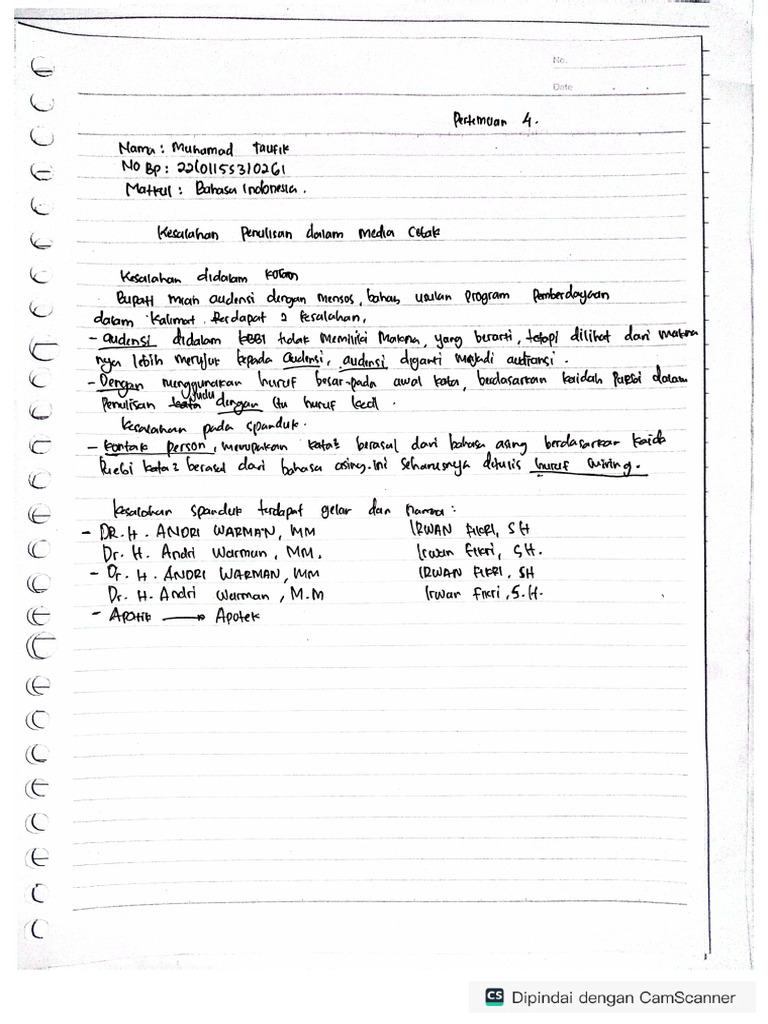 No.
Date
Pertemuan 4.
Nama : Muhamad Taufik
No BP : 2210115310261
Matkul : Bahasa Indonesia.
Kesalahan Penulisan dalam Media Cetak
Kesalahan didalam koran
Bupati miah audensi dengan mensos, bahas usulan program Pemberdayaan
dalam kalimat terdapat 2 kesalahan,
- audensi didalam KBBI tidak memiliki makna, yang berarti, tetapi dilihat dari makna
nya lebih merujuk kepada audensi, audensi diganti menjadi audiansi.
- Dengan menggunakan huruf besar pada awal kata, berdasarkan kaidah PUEBI dalam
Penulisan kata judul dengan itu huruf kecil.
Kesalahan pada spanduk.
- kontak person, merupakan kata² berasal dari bahasa asing berdasarkan kaidah
Puebi kata² berasal dari bahasa asing. Ini seharusnya ditulis huruf miring.
kesalahan spanduk terdapat gelar dan nama :
- DR. H. ANDRI WARMAN, MM IRWAN FIKRI, SH
Dr. H. Andri Warman, MM. Irwan Fikri, SH.
- Dr. H. ANDRI WARMAN, MM IRWAN FIKRI, SH
Dr. H. Andri Warman, M.M Irwan Fikri, S.H.
- Apotik → Apotek
CS Dipindai dengan CamScanner